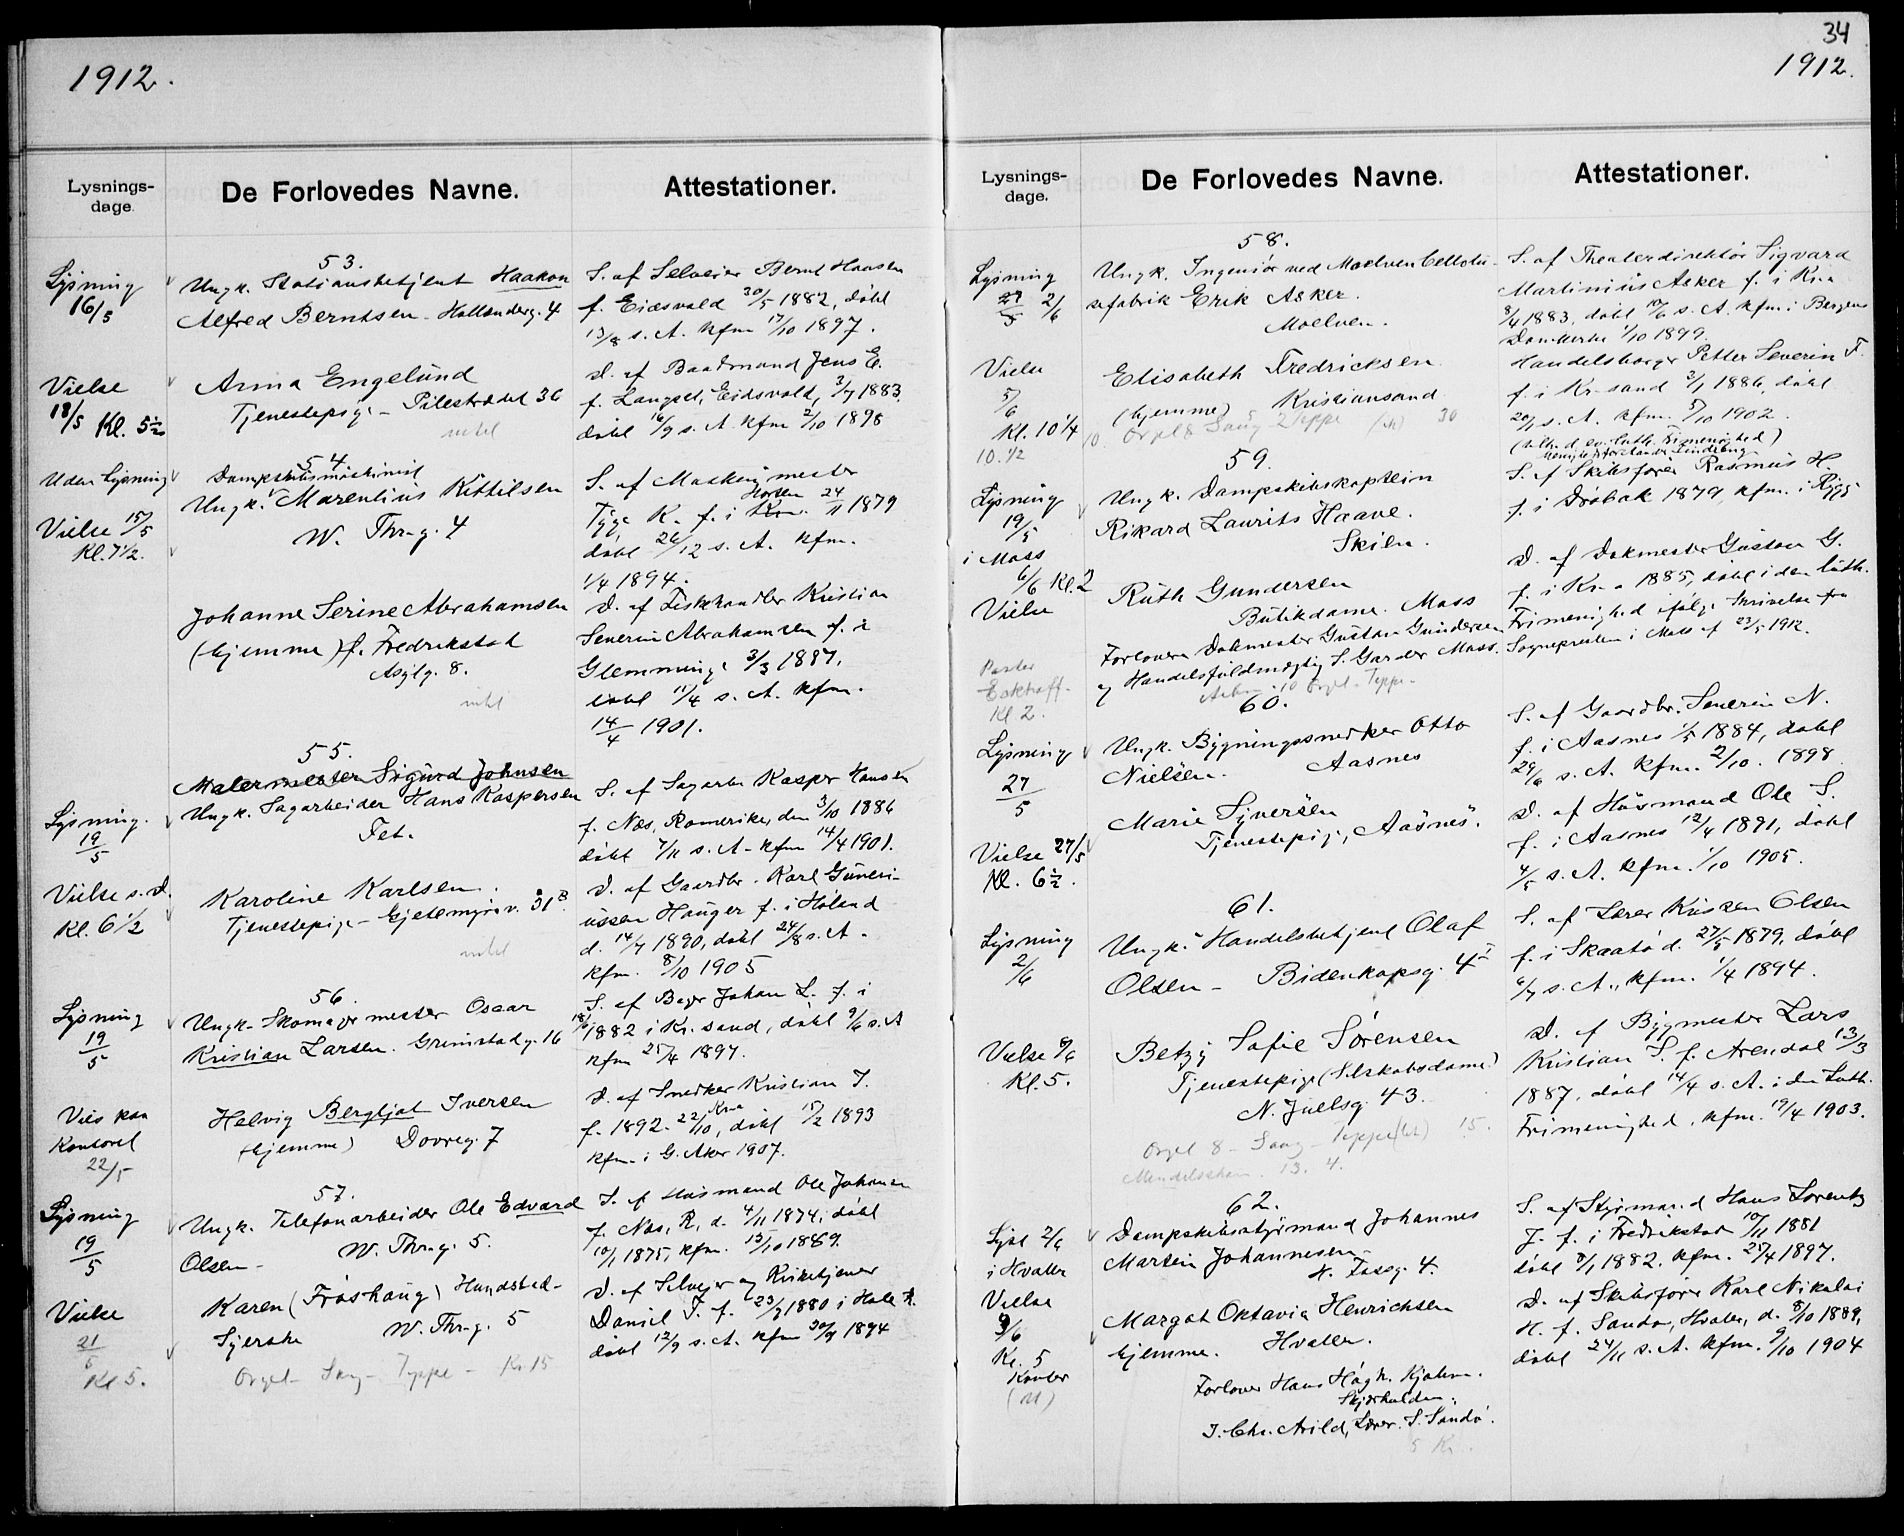 1912.
Lysnings-
dage.
De Forlovedes Navne.
Attestationer.
Lysning
16/5
Vielse
18/5 Kl. 5½
53.
Ungk. Stationsbetjent Haakon
Alfred Berntsen - Hollenderg. 4
Anna Engelund
Tjenestepige - Pilestrædet 36
intet
S. af Selveier Bernt Hansen
f. Eidsvold 30/5 1882, døbt
13/8 s. A. kfm 17/10 1897.
D. af Baadsmand Jens E.
f. Langset, Eidsvold, 3/7 1883.
døbt 16/9 s. A. kfm 2/10 1898
Uden Lysning
Vielse 15/5
Kl. 7½.
54
Dampskibsmaskinist
Ungk. Marentius Kittilsen
W. Thr. g. 4
Johanne Serine Abrahamsen
(hjemme) f. Fredrikstad
Asylg. 8.
intet
S. af Maskinmester
Horten
Tygge K. f. i Kra. 24/11 1879
døbt 26/12 s. A. kfm.
1/4 1894.
D. af Fiskehandler Kristian
Severin Abrahamsen f. i
Glemminge 3/3 1887,
døbt 11/4 s. A. kfm.
14/4 1901.
Lysning.
19/5
Vielse s. D.
Kl. 6½
55.
Malermester Sigurd Johnsen
Ungk. Sagarbeider Hans Kaspersen
Fet.
Karoline Karlsen.
Tjenestepige - Gjetemyrsv. 31 B.
intet
S. af Sagarb. Kasper Hansen
f. Nes, Romerike, den 3/10 1886
døbt 7/11 s. A - kfm 14/4 1901.
D. af Gaardbr. Karl Guneri-
ussen Hauger f. i Høland
d. 14/7 1890, døbt 24/8 s. A.
kfm. 8/10 1905
Lysning
19/5
Vies paa
Kontoret
22/5
56.
Ungk. Skomagermester Oscar
Kristian Larsen. Grimstadg. 16
Helvig Bergljot Iversen
(hjemme) Dovreg. 7
S. af Bager Johan L. f. i
1882 i Kr. sand, døbt 9/6 s. A
kfm 25/4 1897.
D. af Snedker Kristian I.
f. 1892. 22/10 Kra, døbt 15/2 1893
kfm. i G. Aker 1907.
Lysning
19/5
Vielse
21/5
Kl 5.
57.
Ungk. Telefonarbeider Ole Edvard
Olsen - W. Thr. g. 5.
Karen (Frøshaug) Hundstad-
Sjerstu W. Thr. g. 5
Orgel - Sang - Teppe - Kr 15
S. af Husmand Ole Johansen
f. Nes, R, d. 4/11 1874, døbt
10/1 1875, kfm. 13/10 1889.
D. af Selveier og Kirketjener
Daniel T. f. 23/7 1880 i Hole R.
døbt 12/9 s. A. kfm 30/9 1894
34
1912.
Lysnings-
dage.
De Forlovedes Navne.
Attestationer.
Lysning
27/5 2/6
Vielse
5/6
Kl. 10¼
10. ½
58.
Ungk. Ingeniør ved Moelven Cellulo-
sefabrik Erik Asker.
Moelven.
Elisabeth Fredricksen
(hjemme) Kristiansand
Orgel 8 Sang 2 Teppe 30
S. af Theaterdirektør Sigvard
Martinius Asker f. i Kr.a
8/4 1883, døbt 10/6 s. A. kfm. i Bergens
Domkirke 1/10 1899.
Handelsborger Petter Severin F.
f. i Kr. sand 3/1 1886, døbt
20/1 s. A. kfm. 5/10 1902.
Lysning
19/5
i Moss
6/6 Kl. 2
Vielse
Pastor
Eckhoff.
Kl 2.
59.
Ungk. Dampskibskaptein
Rikard Laurits Haave.
Skien.
Ruth Gundersen
Butikdame. Moss
Forlovere Dokmester Gustav Gundersen
og Handelsfuldmægtig S. Garder Moss.
Orgel - Teppe -
S. af Skibsfører Rasmus H.
f. i Drøbak 1879 kfm. i Rygge
D. af Dokmester Gustav G.
f. i Kr. a 1885, døbt i den luth.
Frimenighed ifølge Skrivelse fra
Sognepresten i Moss af 23/5 1912.
Lysning
27/5
Vielse 27/5
Kl. 6½.
60.
Ungk. Bygningssnedker Otto
Nielsen. Aasnes
Marie Syversen
Tjenestepige, Aasnes.
S. af Gaardbr. Severin N.
f. i Aasnes 1/5 1884, døbt
29/6 s. A. kfm. 2/10. 1898
D. af Husmand Ole S.
f. i Aasnes 12/4 1891, døbt
4/5 s. A. kfm. 1/10 1905.
Lysning
2/6
Vielse 9/6
Kl. 5.
61.
Ungk. Handelsbetjent Olaf
Olsen - Bidenkapsg. 4 I
Betzy Sofie Sørensen
Tjenestepige (Selskabsdame)
N. Juelsg. 43.
Orgel 8 - Sang - Teppe 15.
Mendelssohn. 13. 4.
S. af Lærer Kristen Olsen
f. i Skaatø d. 27/5 1879, døbt
6/7 s. A., kfm. 1/4 1894.
D. af Bygmester Lars
Kristian S. f. Arendal 13/3
1887, døbt 14/4 s. A. i den Luth.
Frimenighed, kfm. 19/4 1903.
Lyst 2/6
i Hvaler
Vielse
9/6
Kl. 5
Kontor
62.
Dampskibsstyrmand Johannes
Martin Johannesen -
H. Fossg. 4.
Margot Oktavia Henrichsen
hjemme. Hvaler.
Forlover Hans Høgh. Kjølsen.
Skjærhalden.
J. Chr. Arild, Lærer. S. Sandø.
5 Kr.
S. af Styrmand Hans Lorentz
J. f. i Fredrikstad 10/11 1881
døbt 8/1 1882. kfm. 25/4 1897.
D. af Skibsfører Karl Nikolai
H. f. Sandø, Hvaler, d. 8/10 1889,
døbt 24/11 s. A. kfm. 9/10 1904